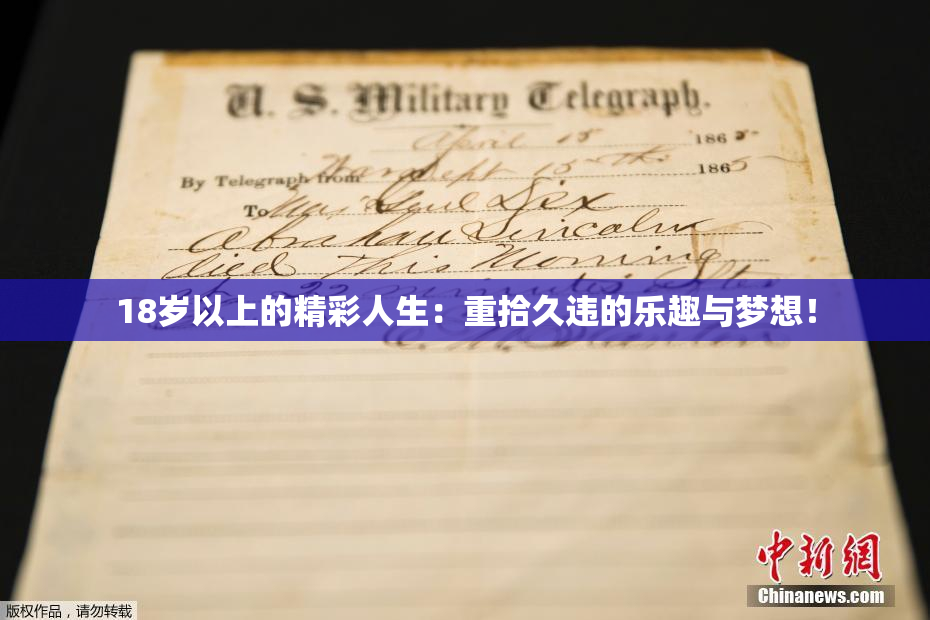 U. S. Military Telegraph.
April 15 1865
By Telegraph from War Dept 15th 1865
To Maj Genl Dix
Abraham Lincoln
died This Morning
at 22 minutes after
18岁以上的精彩人生：重拾久违的乐趣与梦想！
E. M. Stanton
中新網
Chinanews.com
版权作品，请勿转载